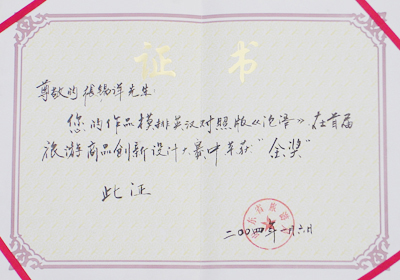 证书
尊敬的张德详先生：
您的作品横排英汉对照版《论语》在首届
旅游商品创新设计大赛中荣获“金奖”
此证
二00四年 月六日